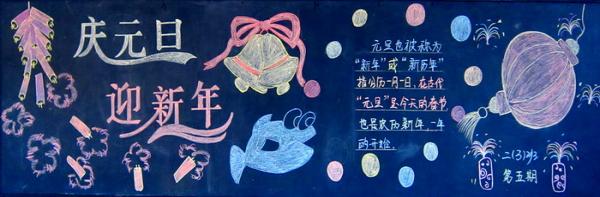 庆元旦
迎新年
元旦也被称为
“新年”或“新历年”
指公历一月一日,在古代
“元旦”是今天的春节
也是农历新年,一年
的开始.
二(3)班
第五期